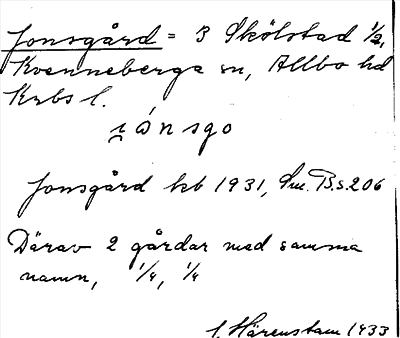 Jonsgård = 3 Skölstad 1/2,
Kvenneberga sn, Allbo hd
Krbs l.
i̯ónsgo
Jonsgård kb 1931, Sm. B.s.206
Därav 2 gårdar med samma
namn, 1/4, 1/4
C. Härenstam 1933